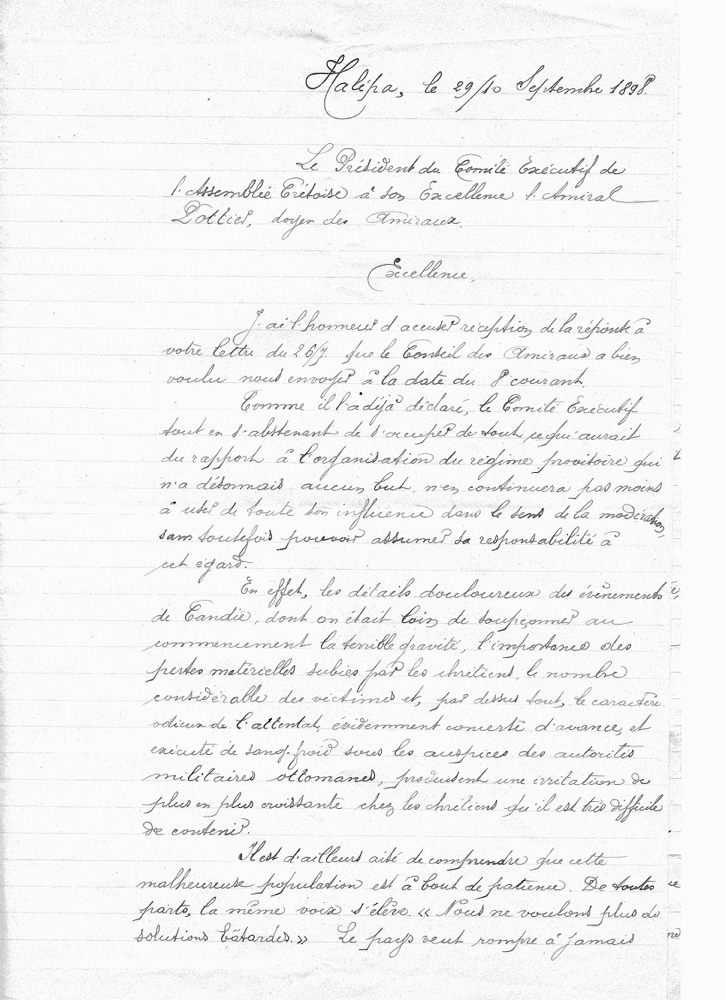 Halépa, le 29/10 Septembre 1898.
Le Président du Comité Exécutif de
l'Assemblée Crétoise à son Excellence l'Amiral
Pottier, doyen des Amiraux.
Excellence,
J'ai l'honneur d'accuser réception de la réponse à
votre lettre du 26/7 que le Conseil des Amiraux a bien
voulu nous envoyer à la date du 8 courant.
Comme il l'a déjà déclaré, le Comité Exécutif
tout en s'abstenant de s'occuper de tout ce qui aurait
du rapport à l'organisation du régime provisoire qui
n'a désormais aucun but, n'en continuera pas moins
à user de toute son influence dans le sens de la modération,
sans toutefois pouvoir assumer sa responsabilité à
cet égard.
En effet, les détails douloureux des évènements
de Candie, dont on était loin de soupçonner au
commencement la terrible gravité, l'importance des
pertes matérielles subies par les chrétiens, le nombre
considérable des victimes et, par dessus tout, le caractère
odieux de l'attentat, évidemment concerté d'avance, et
exécuté de sang-froid sous les auspices des autorités
militaires ottomanes, produisent une irritation de
plus en plus croissante chez les chrétiens qu'il est très difficile
de contenir.
Il est d'ailleurs aisé de comprendre que cette
malheureuse population est à bout de patience. De toutes
parts, la même voix s'élève. « Nous ne voulons plus de
solutions bâtardes. » Le pays veut rompre à jamais